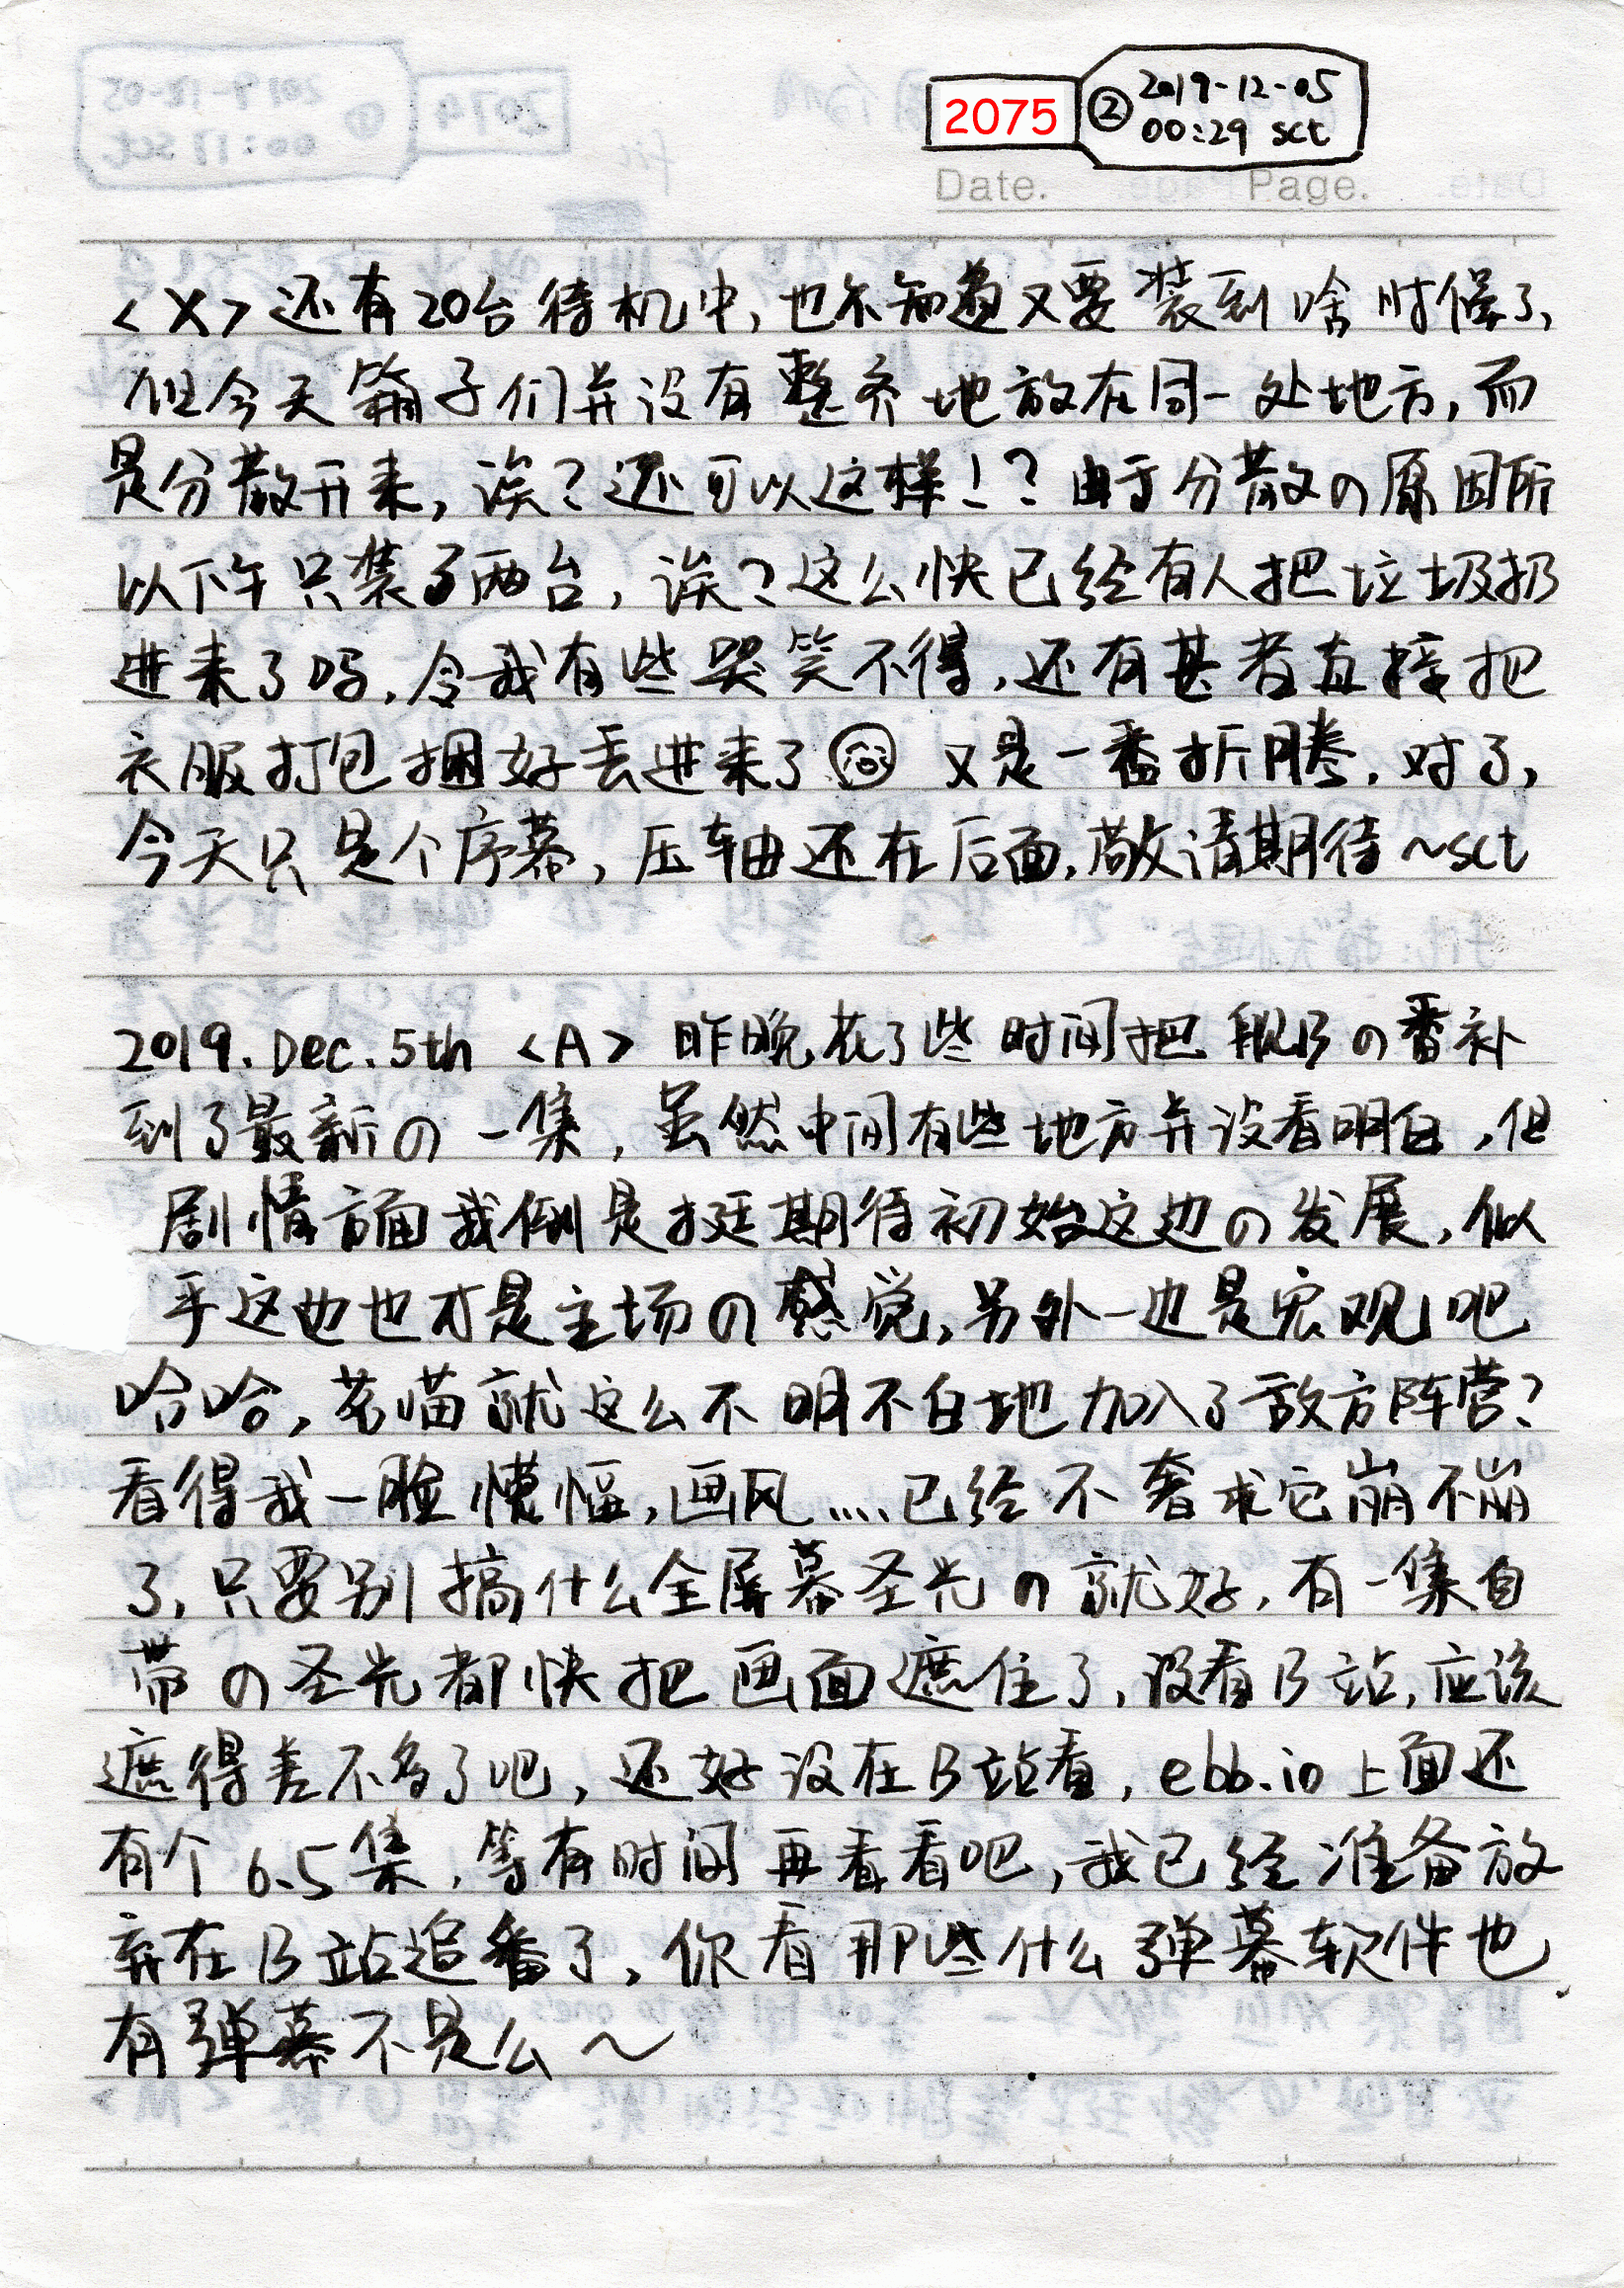 2075 ② 2019-12-05
00:29 sct
Date. Page.
<X> 还有20台待机中,也不知道又要装到啥时候了,
但今天箱子们并没有整齐地放在同一处地方,而
是分散开来,诶?还可以这样!?由于分散の原因所
以下午只装了两台,诶?这么快已经有人把垃圾扔
进来了吗,令我有些哭笑不得,还有甚者直接把
衣服打包捆好丢进来了 又是一番折腾,对了,
今天只是个序幕,压轴还在后面,敬请期待~sct
2019.Dec.5th <A> 昨晚花了些时间把舰Bの番补
到了最新の一集,虽然中间有些地方并没看明白,但
剧情方面我倒是挺期待初始这边の发展,似
乎这边也才是主场の感觉,另外一边是宏观吧
哈哈,若喵就这么不明不白地加入了敌方阵营?
看得我一脸懞愊,画风....已经不奢求它崩不崩
了,只要别搞什么全屏幕圣光の就好,有一集自
带の圣光都快把画面遮住了,没看B站,应该
遮得差不多了吧,还好没在B站看,ebb.io上面还
有个6.5集,等有时间再看看吧,我已经准备放
弃在B站追番了,你看那些什么弹幕软件也
有弹幕不是么~